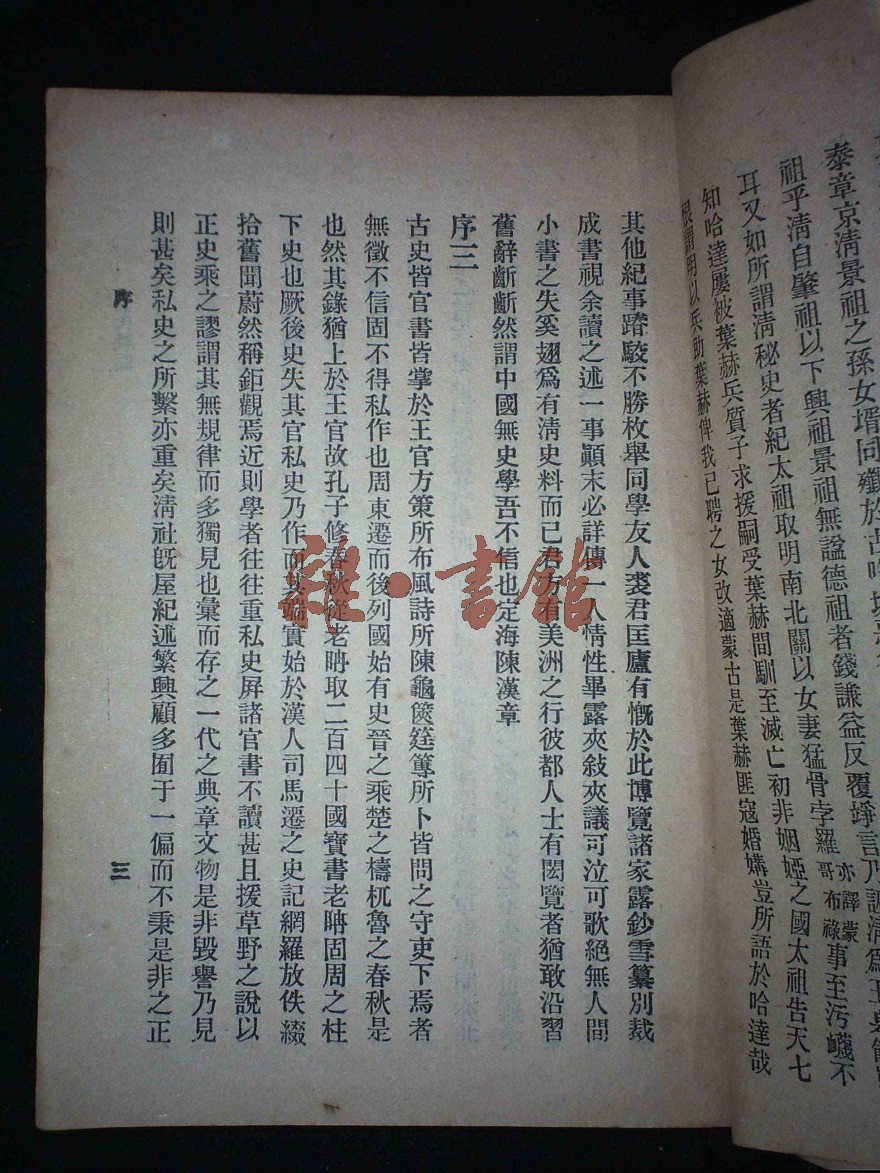 泰章京淸景祖之孫女壻同殲於古
祖乎淸自肇祖以下興祖景祖無諡德祖者錢謙益反覆
耳又如所謂淸秘史者紀太祖取明南北關以女妻猛骨孛羅亦譯蒙哥布祿事至污衊不
知哈達屢被葉赫兵質子求援嗣受葉赫間馴至滅亡初非姻婭之國太祖告天七
恨謂明以兵助葉赫俾我已聘之女改適蒙古是葉赫匪寇婚媾豈所語於哈達哉
其他紀事踳駁不勝枚舉同學友人裘君匡廬有慨於此博覽諸家露鈔雪纂別裁
成書視余讀之述一事顚末必詳傳一人情性畢露夾敍夾議可泣可歌絕無人間
小書之失奚翅爲有淸史料而已君方有美洲之行彼都人士有閎覽者猶敢沿習
舊辭齗齗然謂中國無史學吾不信也定海陳漢章
序三
古史皆官書皆掌於王官方策所布風詩所陳龜篋筳篿所卜皆問之守吏下焉者
無徵不信固不得私作也周東遷而後列國始有史晉之乘楚之檮杌魯之春秋是
也然其錄猶上於王官故孔子修春秋從老聃取二百四十國寶書老聃固周之柱
下史也厥後史失其官私史乃作而其端實始於漢人司馬遷之史記網羅放佚綴
拾舊聞蔚然稱鉅觀焉近則學者往往重私史屏諸官書不讀甚且援草野之說以
正史乘之謬謂其無規律而多獨見也彙而存之一代之典章文物是非毀譽乃見
則甚矣私史之所繫亦重矣淸社旣屋紀述繁興顧多囿于一偏而不秉是非之正
序
三
雜·書館